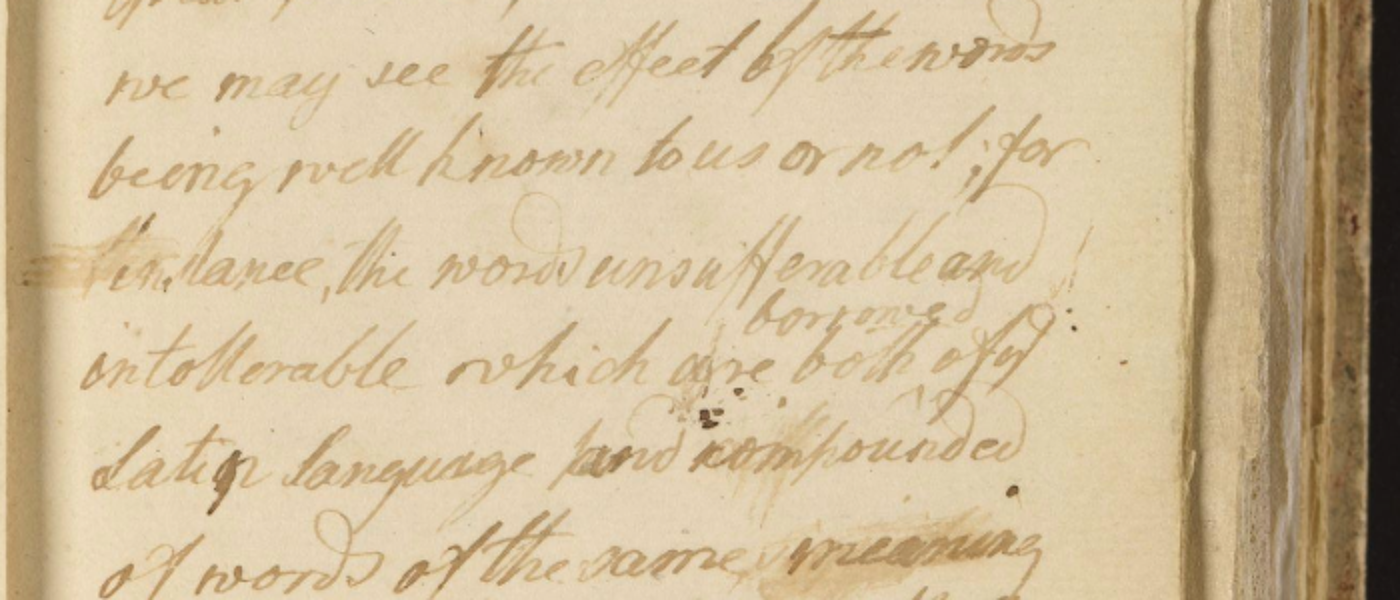 we may see the effect of the words
being well known to us or not; for
instance, the words unsufferable and
borrowed
intollerable which are both of yᵉ
Latin language and compounded
of words of the same meaning